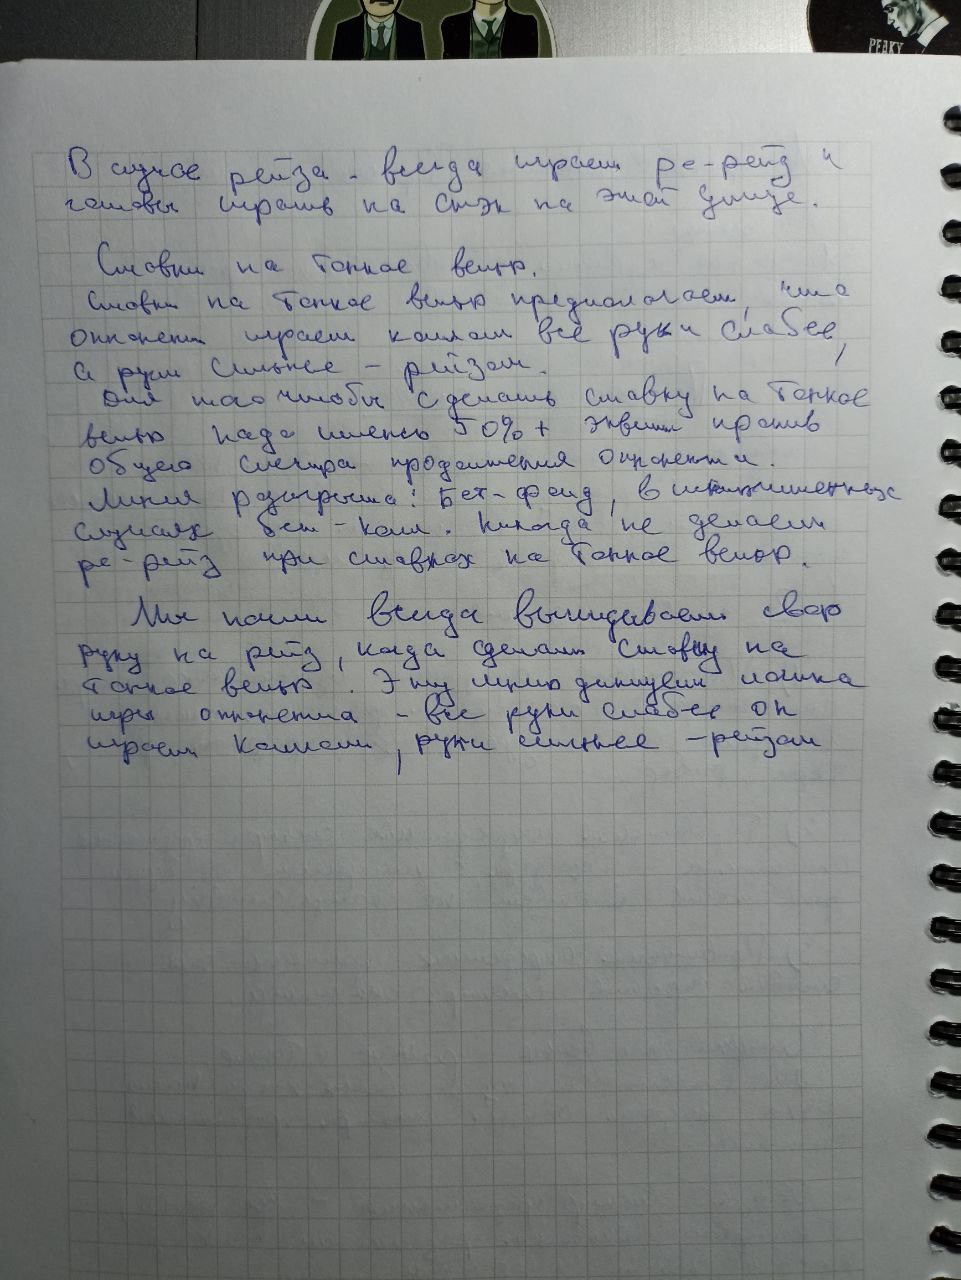 PEAKY
В случае рейза - всегда играем ре-рейз и
готовы играть на стэк на этой улице.
Ставки на тонкое велью.
Ставки на тонкое велью предполагает, что
оппонент играет коллом все руки слабее,
а руки сильнее - рейзом.
Для того чтобы сделать ставку на тонкое
велью надо иметь 50%+ эквити против
общего спектра продолжения оппонента.
Линия розыгрыша: Бет-фолд, в
случаях бет-колл. Никогда не делаем
ре-рейз при ставках на тонкое велью.
Мы почти всегда выкидываем свою
руку на рейз, когда сделали ставку на
тонкое велью. Эту линию диктует логика
игры оппонента - все руки слабее он
играет коллом, руки сильнее - рейзом